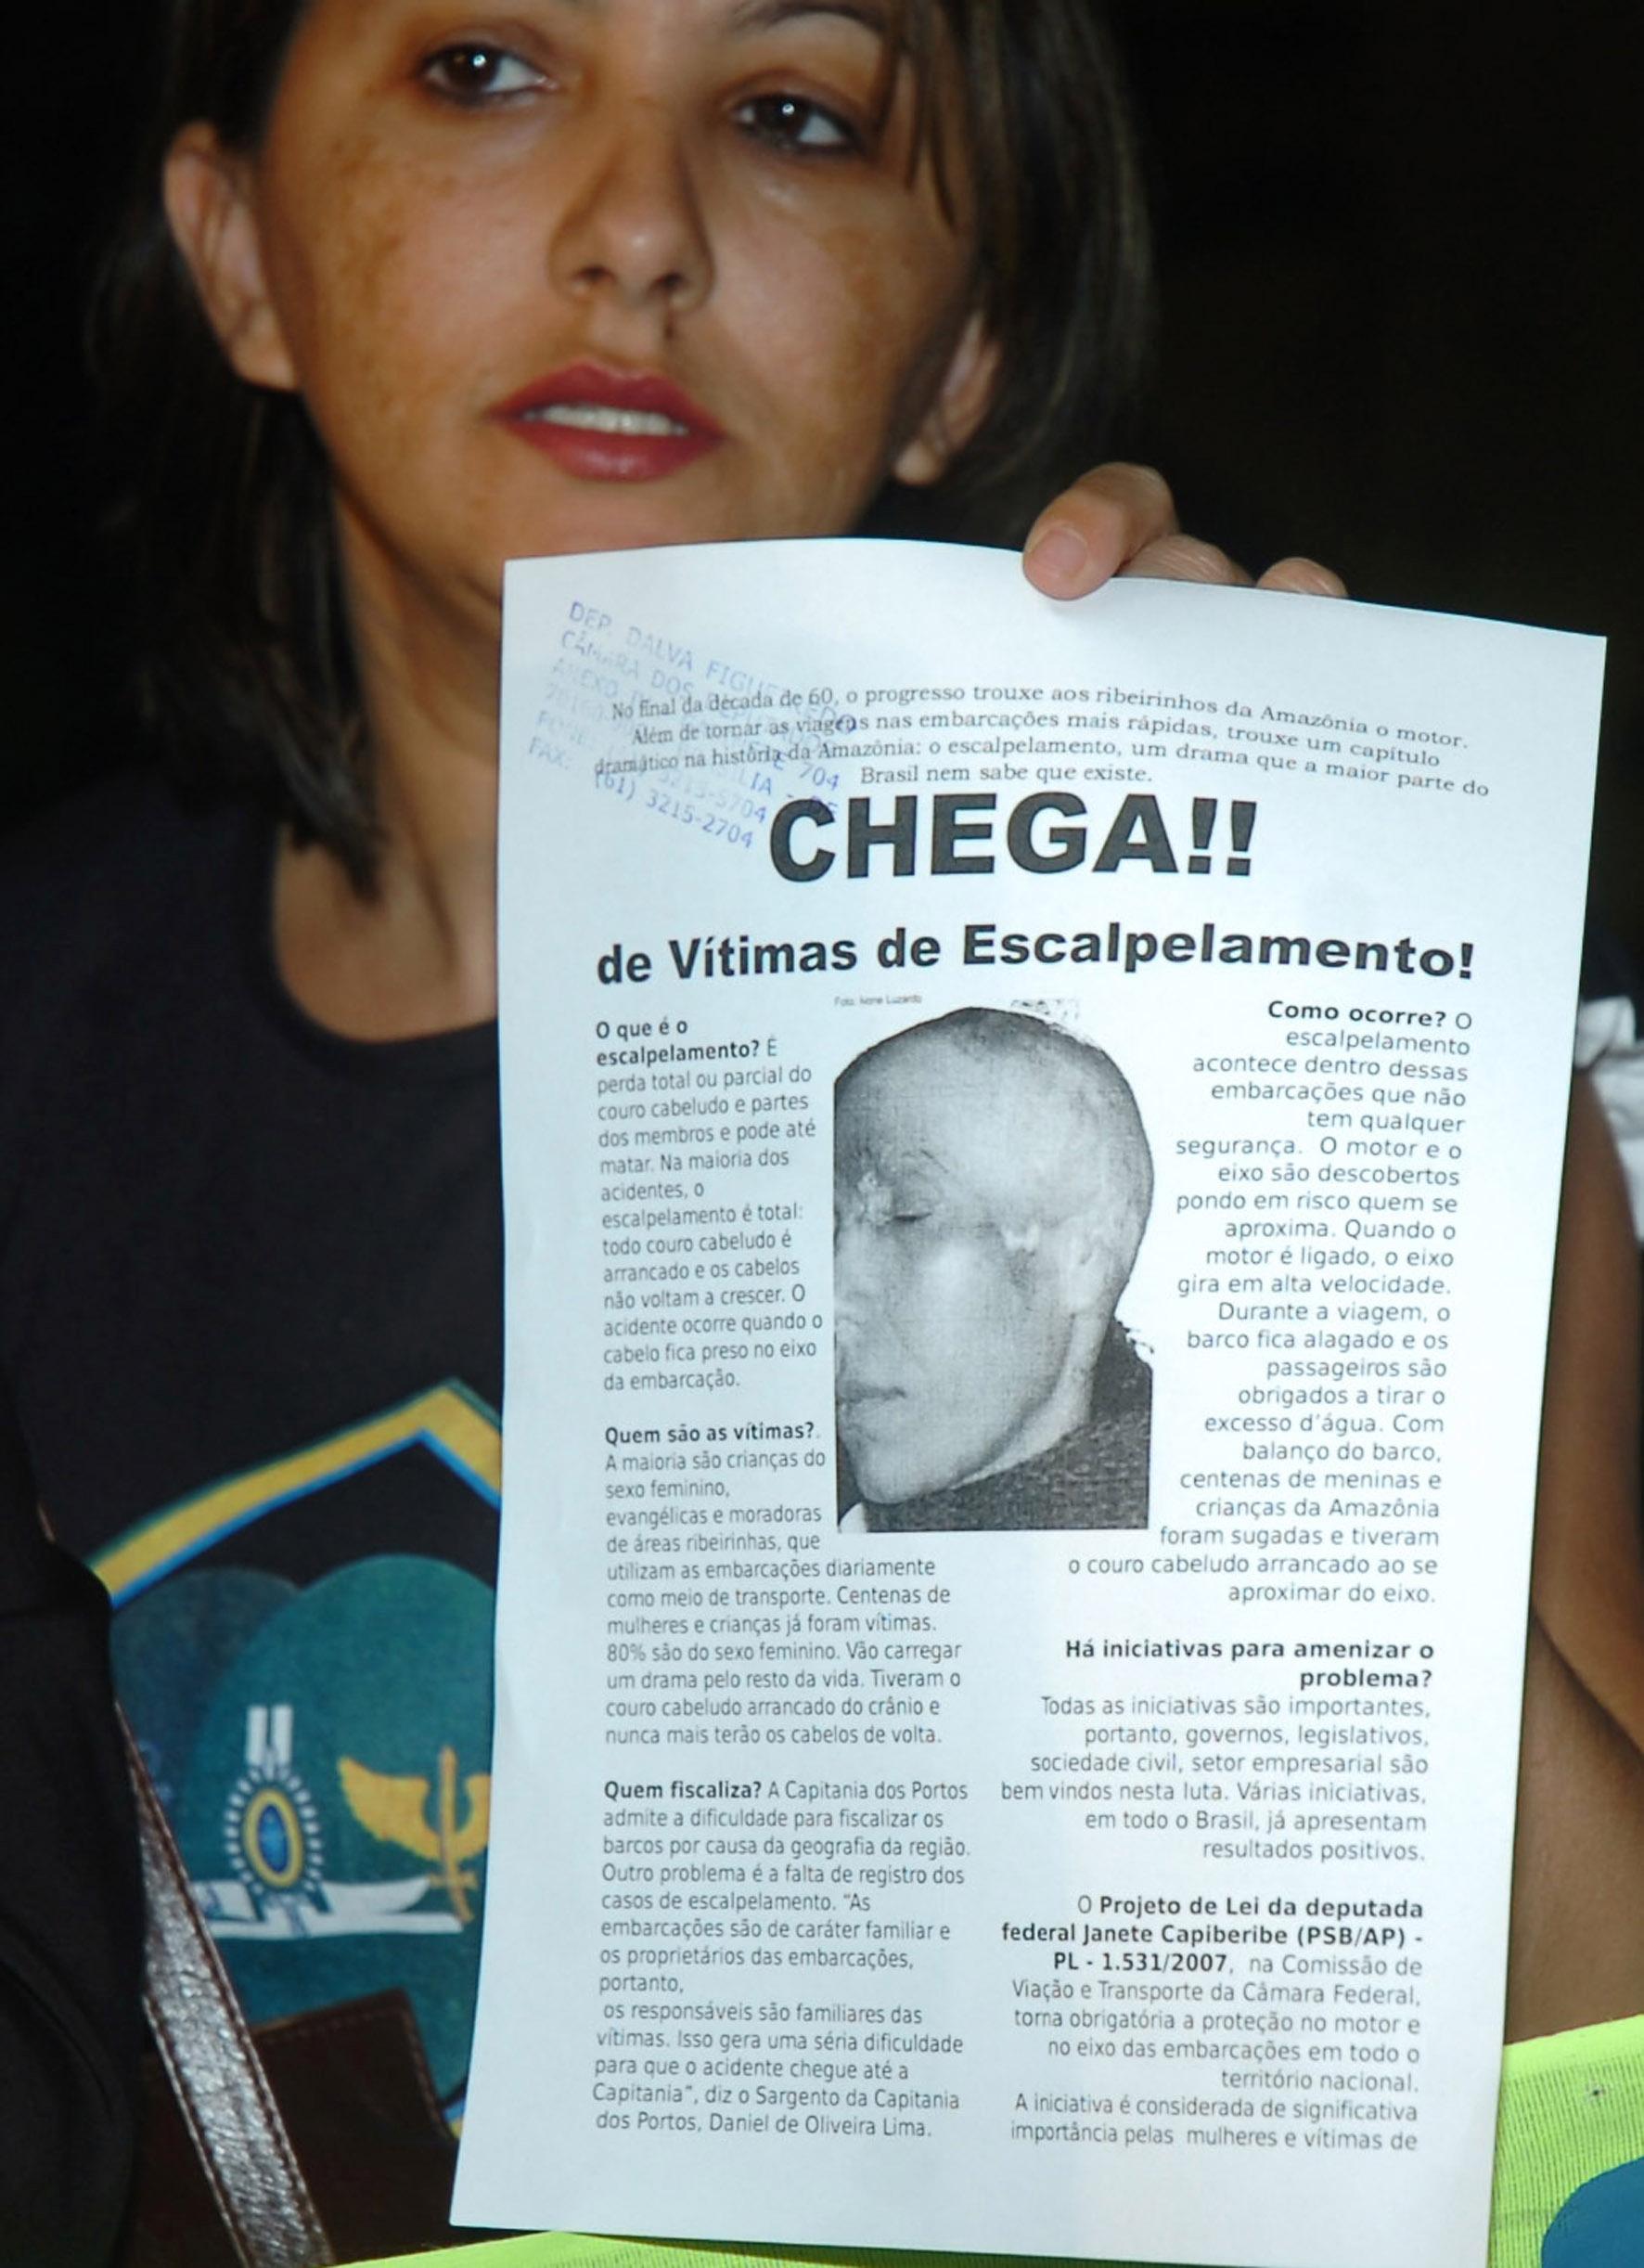 DEP. DALVA FIGUEIREDO
CÂMARA DOS
ANEXO
704
FAX: (61) 3215-2704
No final da década de 60, o progresso trouxe aos ribeirinhos da Amazônia o motor.
Além de tornar as viagens nas embarcações mais rápidas, trouxe um capítulo
dramático na história da Amazônia: o escalpelamento, um drama que a maior parte do
Brasil nem sabe que existe.
CHEGA!!
de Vítimas de Escalpelamento!
Foto: Ivone Luzardo
O que é o
escalpelamento? É
perda total ou parcial do
couro cabeludo e partes
dos membros e pode até
matar. Na maioria dos
acidentes, o
escalpelamento é total:
todo couro cabeludo é
arrancado e os cabelos
não voltam a crescer. O
acidente ocorre quando o
cabelo fica preso no eixo
da embarcação.
Quem são as vítimas?.
A maioria são crianças do
sexo feminino,
evangélicas e moradoras
de áreas ribeirinhas, que
utilizam as embarcações diariamente
como meio de transporte. Centenas de
mulheres e crianças já foram vítimas.
80% são do sexo feminino. Vão carregar
um drama pelo resto da vida. Tiveram o
couro cabeludo arrancado do crânio e
nunca mais terão os cabelos de volta.
Quem fiscaliza? A Capitania dos Portos
admite a dificuldade para fiscalizar os
barcos por causa da geografia da região.
Outro problema é a falta de registro dos
casos de escalpelamento. “As
embarcações são de caráter familiar e
os proprietários das embarcações,
portanto,
os responsáveis são familiares das
vítimas. Isso gera uma séria dificuldade
para que o acidente chegue até a
Capitania”, diz o Sargento da Capitania
dos Portos, Daniel de Oliveira Lima.
Como ocorre? O
escalpelamento
acontece dentro dessas
embarcações que não
tem qualquer
segurança. O motor e o
eixo são descobertos
pondo em risco quem se
aproxima. Quando o
motor é ligado, o eixo
gira em alta velocidade.
Durante a viagem, o
barco fica alagado e os
passageiros são
obrigados a tirar o
excesso d'água. Com
balanço do barco,
centenas de meninas e
crianças da Amazônia
foram sugadas e tiveram
o couro cabeludo arrancado ao se
aproximar do eixo.
Há iniciativas para amenizar o
problema?
Todas as iniciativas são importantes,
portanto, governos, legislativos,
sociedade civil, setor empresarial são
bem vindos nesta luta. Várias iniciativas,
em todo o Brasil, já apresentam
resultados positivos.
O Projeto de Lei da deputada
federal Janete Capiberibe (PSB/AP) -
PL - 1.531/2007, na Comissão de
Viação e Transporte da Câmara Federal,
torna obrigatória a proteção no motor e
no eixo das embarcações em todo o
território nacional.
A iniciativa é considerada de significativa
importância pelas mulheres e vítimas de